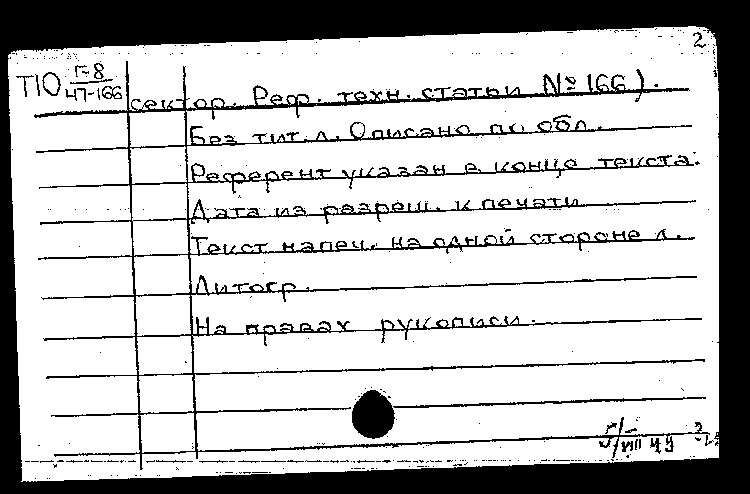 2
Т10 Г-8
47-166
сектор. Реф. техн. статьи № 166).
Без тит. л. Описано по обл.
Референт указан в конце текста.
Дата из разреш. к печати
Текст напеч. на одной стороне л.
Литогр.
На правах рукописи.
VIII 49